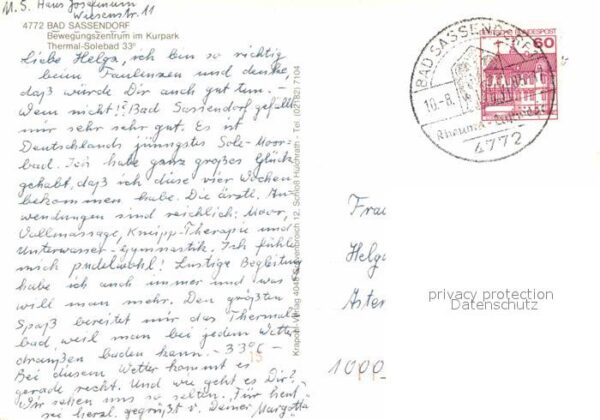 M. S. Haus Josefinum
Wiesenstr. 11
4772 BAD SASSENDORF
Bewegungszentrum im Kurpark
Thermal-Solebad 33°
Liebe Helga, ich bin so richtig
beim Faulenzen und denke,
daß würde Dir auch gut tun. -
Wem nicht!! Bad Sassendorf gefällt
mir sehr sehr gut. Es ist
Deutschlands jüngstes Sole-Moor-
bad. Ich habe ganz großes Glück
gehabt, daß ich diese vier Wochen
bekommen habe. Die ärztl. An-
wendungen sind reichlich: Moor,
Vollmassage, Kneipp-Therapie und
Unterwasser-Gymnastik. Ich fühle
mich pudelwohl! Lustige Begleitung
habe ich auch immer und was
will man mehr. Den größten
Spaß bereitet mir das Thermal-
bad, weil man bei jedem Wetter
draußen baden kann. - 33°C -
Bei diesem Wetter kommt es
gerade recht. Und wie geht es Dir?
Wir sehen uns so selten. Für heut'
sei herzl. gegrüßt v. Deiner Margotta
Schloß Hülchrath · Tel. (02182) 7104
BAD SASSENDORF
BUNDESPOST
60
10.-8.
Rheuma
4772
Frau
Helga
Aster
privacy protection
Datenschutz
1000
15